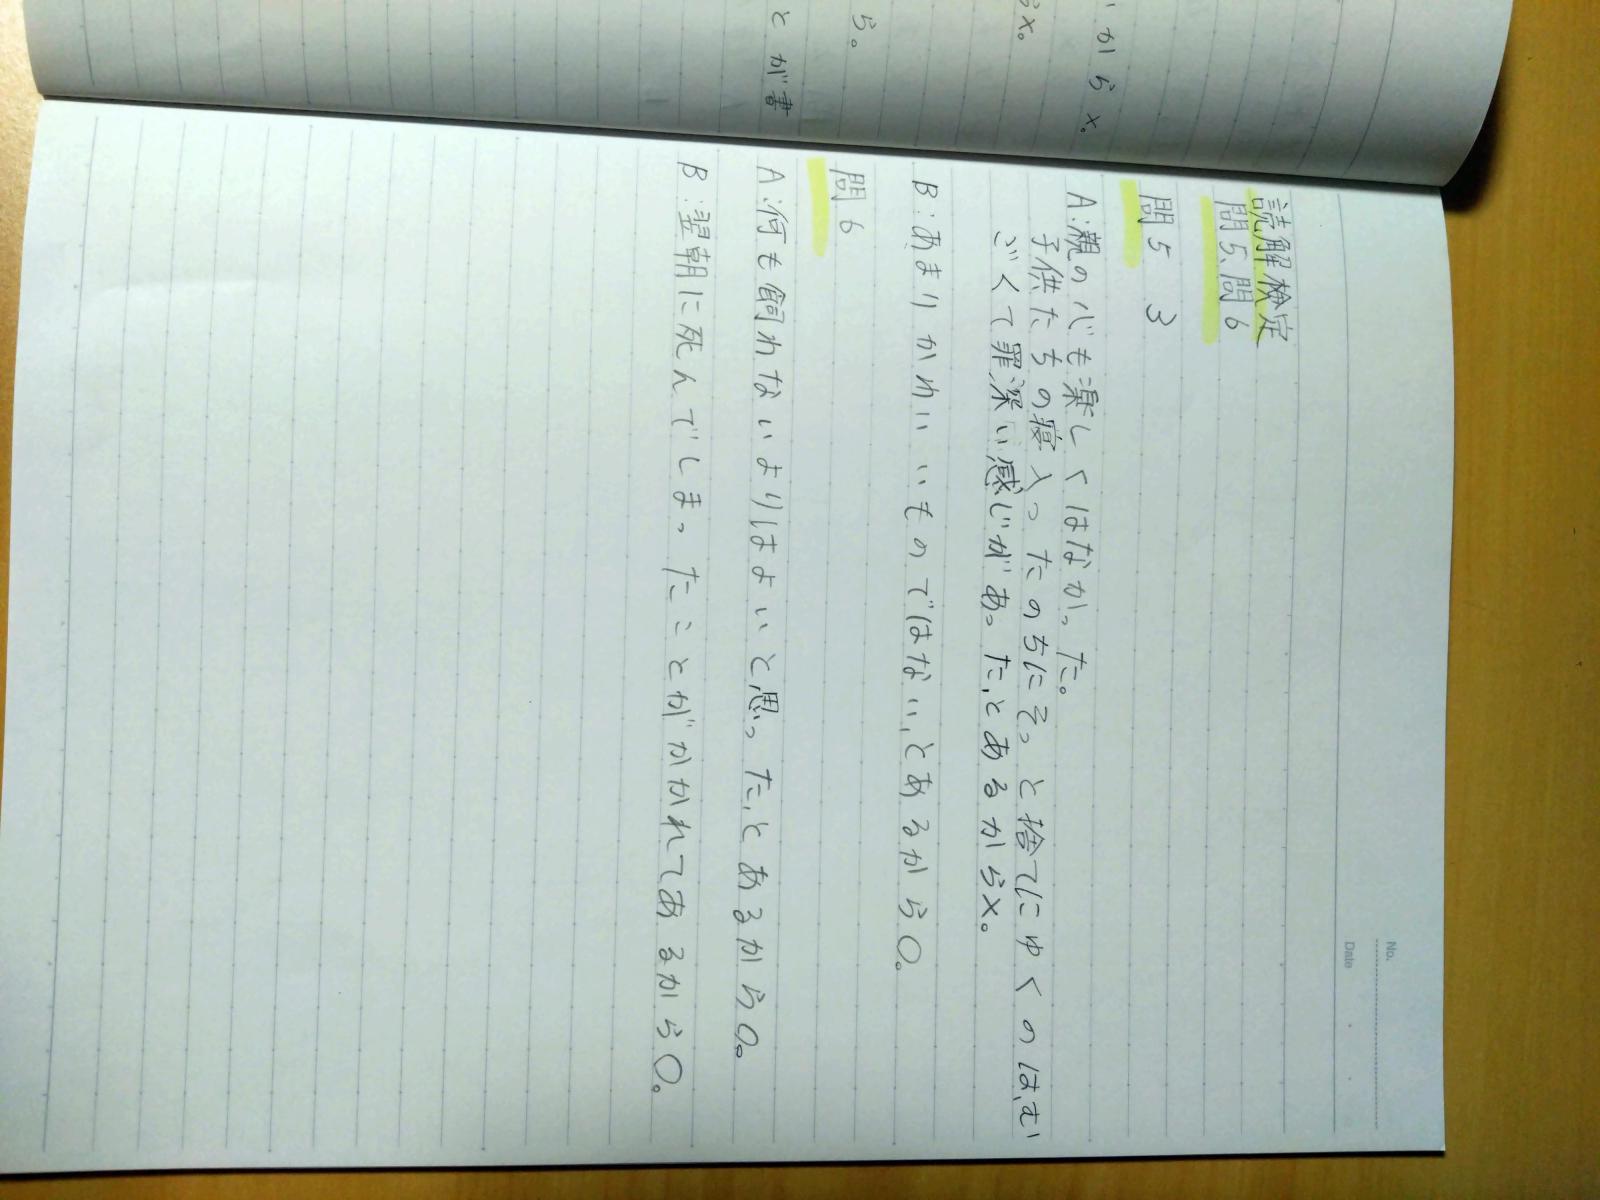 からx。
x。
ら。
とが書
No.
Date
読解検定
問5、問6
問5 3
A:親の心も楽しくはなかった。
子供たちの寝入ったのちにそっと捨てにゆくのは、むご
ごくて罪深い感じがあった、とあるからx。
B:あまりかわいいものではない、とあるから○。
問6
A:何も飼わないよりはよいと思った、とあるから○。
B:翌朝に死んでしまったことがかかれてあるから○。